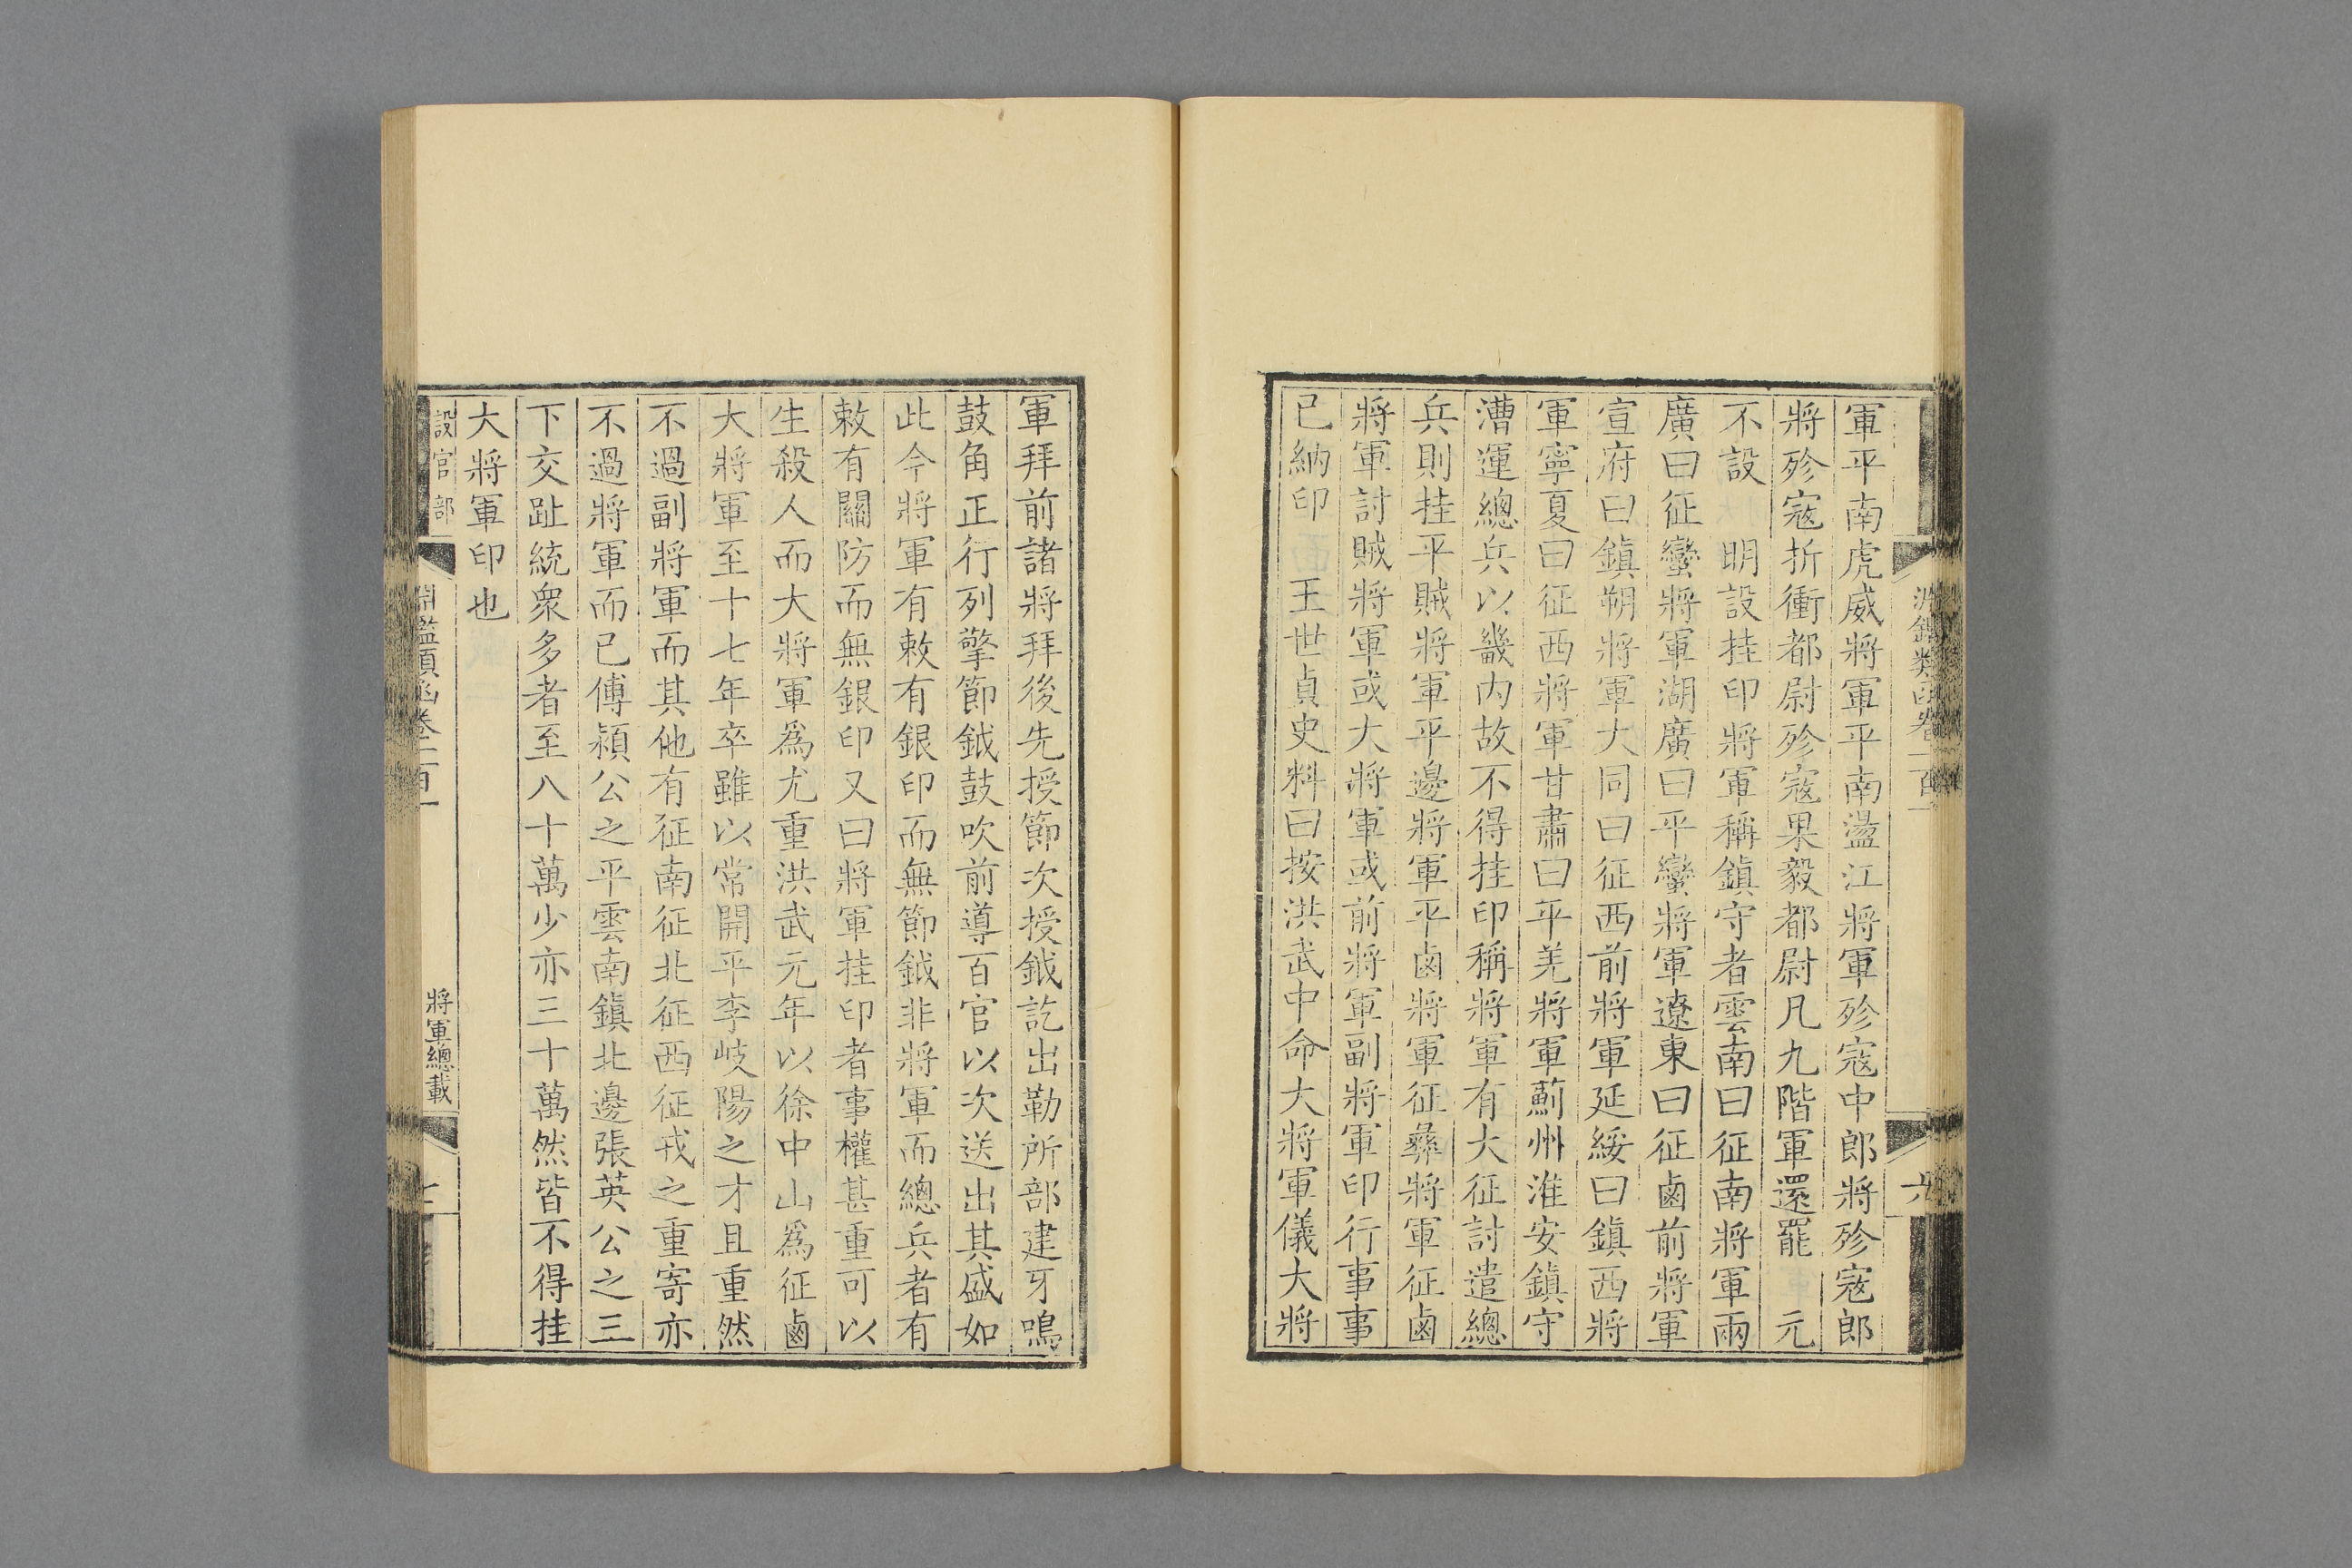 軍平南虎威將軍平南盪江將軍殄寇中郎將殄寇郎
將殄寇折衝都尉殄寇果毅都尉凡九階軍還罷 元
不設 明設挂印將軍稱鎮守者雲南曰征南將軍兩
廣曰征蠻將軍湖廣曰平蠻將軍遼東曰征鹵前將軍
宣府曰鎮朔將軍大同曰征西前將軍延綏曰鎮西將
軍寧夏曰征西將軍甘肅曰平羌將軍薊州淮安鎮守
漕運總兵以畿內故不得挂印稱將軍有大征討遣總
兵則挂平賊將軍平邊將軍平鹵將軍征彝將軍征鹵
將軍討賊將軍或大將軍或前將軍副將軍印行事事
已納印 王世貞史料曰按洪武中命大將軍儀大將
軍拜前諸將拜後先授節次授鉞訖出勒所部建牙鳴
鼓角正行列擎節鉞鼓吹前導百官以次送出其盛如
此今將軍有敕有銀印而無節鉞非將軍而總兵者有
敕有關防而無銀印又曰將軍挂印者事權甚重可以
生殺人而大將軍爲尤重洪武元年以徐中山爲征鹵
大將軍至十七年卒雖以常開平李岐陽之才且重然
不過副將軍而其他有征南征北征西征戎之重寄亦
不過將軍而已傅潁公之平雲南鎮北邊張英公之三
下交趾統衆多者至八十萬少亦三十萬然皆不得挂
大將軍印也
設官部
淵鑑類函卷一百一
將軍總載